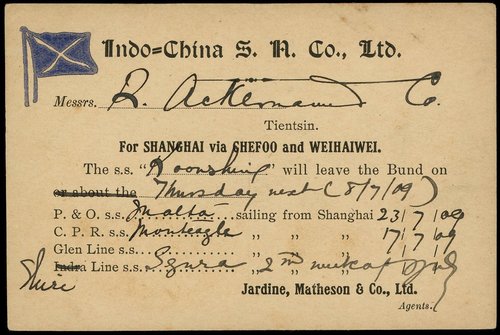 Indo-China S. N. Co., Ltd.
Messrs. R. Ackermann & Co.
Tientsin.
For SHANGHAI via CHEFOO and WEIHAIWEI.
The s.s. "Koonshing" will leave the Bund on
or about the Thursday next (8/7/09)
P. & O. s.s. Malta sailing from Shanghai 23/7/09
C. P. R. s.s. Monteagle " " " 17/7/09
Glen Line s.s. " " "
Indra Line s.s. " 2nd week of July
Jardine, Matheson & Co., Ltd.
Agents.